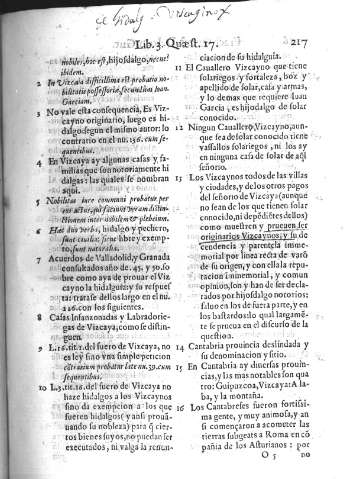 el hidalg. Vizcaino
Lib. 3. Quæst. 17. 217
nobiles, hoc est, hijosdalgo, nec ut
ibidem.
2 In Vizcaya difficillima est probatio no-
bilitatis possessoriæ, secundum Ioan.
Garciam.
3 No vale esta consequencia, Es Viz-
cayno originario, luego es hi-
dalgo segun el mismo autor: lo
contrario en el nu. 156. cum se-
quentibus.
4 En Vizcaya ay algunas casas y fa-
milias que son notoriamente hi
dalgas: las quales se nombran
aqui.
5 Nobilitas iure communi probatur per
actus, qui faciunt veram distin-
ctionem inter nobilem & plebeium.
6 Hæc duo verba, hidalgo y pechero,
sunt correlatiua: sicut liber, & exemp-
tus, & sunt naturalia.
7 Acuerdos de Valladolid y Granada
consultados año de. 45. y 50. so
bre como aya de prouar el Viz-
cayno la hidalguia: y su respues
ta: tratase dellos largo en el nu.
226. con los siguientes.
8 Casas Infanzonadas y Labradorie-
gas de Vizcaya, como se distin-
guen.
9 L. 16. tit. 1. del fuero de Vizcaya, no
es ley sino vna simple peticion
contrarium probatur late nu. 39. cum
sequentibus.
10 L. 3. tit. 16. del fuero de Vizcaya no
haze hidalgos a los Vizcaynos
sino da exempcion a los que
fueren hidalgos (y ansi proua-
ren su nobleza) para q̃ cier
tos bienes suyos, no puedan ser
executados, ni valga la renun-
ciacion de su hidalguia.
11 El Cauallero Vizcayno que tiene
solariegos y fortaleza, boz y
apellido de solar, casa y armas,
y lo demas que requiere Iuan
Garcia, es hijodalgo de solar
conocido.
12 Ningun Cauallero, Vizcayno, aun-
que sea de solar conocido tiene
vassallos solariegos, ni los ay
en ninguna casa de solar de aq̃l
señorio.
13 Los Vizcaynos todos de las villas
y ciudades, y de los otros pagos
del señorio de Vizcaya (aunque
no sean de los que tienen solar
conocido, ni dependientes dellos)
como muestren y prueuen ser
originarios Vizcaynos, y su de
cendencia y parentela imme-
morial por linea recta de varõ
de su origen, y con ella la reputa-
cion immemorial, y comun
opinion, son y han de ser decla-
rados por hijodalgo notorios:
saluo en los de fuera parte, y en
los bastardos lo qual largamẽ-
te se prueua en el discurso de la
question.
14 Cantabria prouincia deslindada y
su denominacion y sitio.
15 En Cantabria ay diuersas prouin-
cias, y las mas notables son qua
tro: Guipuzcoa, Vizcaya: Ala-
ba, y la montaña.
16 Los Cantabreses fueron fortissi-
ma gente, y muy animosa, y an
si començaron a acometer las
tierras subgetas a Roma en cõ
pañia de los Asturianos: por
O 5 no